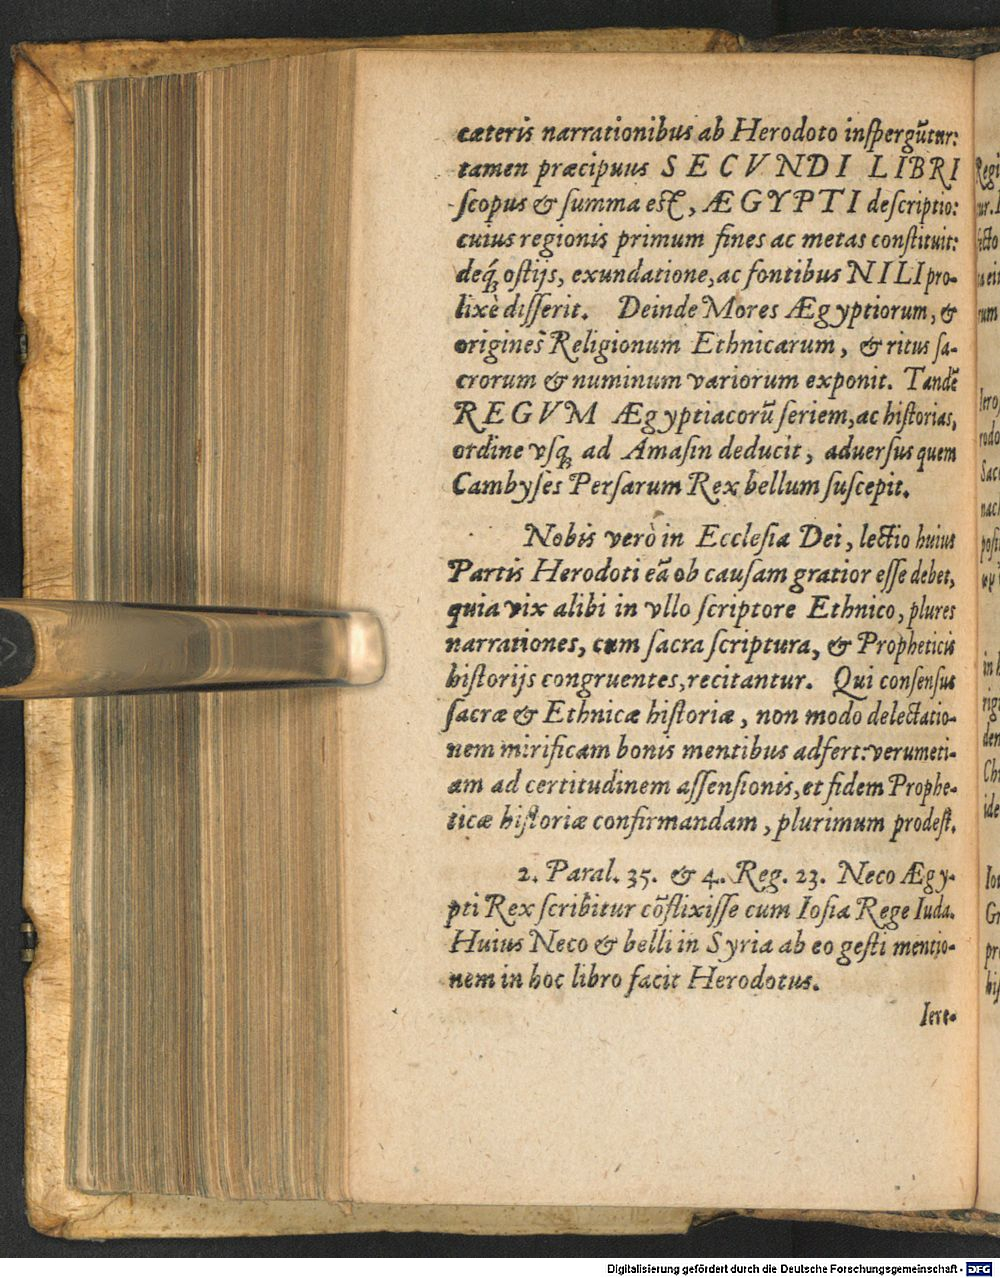 cæteris narrationibus ab Herodoto inspergũtur:
tamen præcipuus SECVNDI LIBRI
scopus & summa est, ÆGYPTI descriptio:
cuius regionis primum fines ac metas constituit:
deq́; ostijs, exundatione, ac fontibus NILI pro-
lixè disserit. Deinde Mores Ægyptiorum, &
origines Religionum Ethnicarum, & ritus sa-
crorum & numinum variorum exponit. Tandẽ
REGVM Ægyptiacorũ seriem, ac historias,
ordine vsq; ad Amasin deducit, aduersus quem
Cambyses Persarum Rex bellum suscepit.
Nobis verò in Ecclesia Dei, lectio huius
Partis Herodoti eã ob causam gratior esse debet,
quia vix alibi in vllo scriptore Ethnico, plures
narrationes, cum sacra scriptura, & Propheticis
historijs congruentes, recitantur. Qui consensus
sacræ & Ethnicæ historiæ, non modo delectatio-
nem mirificam bonis mentibus adfert: verumeti-
am ad certitudinem assensionis, et fidem Prophe-
ticæ historiæ confirmandam, plurimum prodest.
2. Paral. 35. & 4. Reg. 23. Neco Ægy-
pti Rex scribitur cõflixisse cum Iosia Rege Iuda.
Huius Neco & belli in Syria ab eo gesti mentio-
nem in hoc libro facit Herodotus.
Iere-
Digitalisierung gefördert durch die Deutsche Forschungsgemeinschaft - DFG